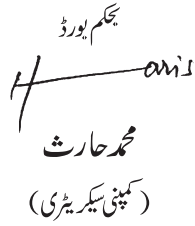 بحکم بورڈ
Haris
محمد حارث
(کمپنی سیکریٹری)